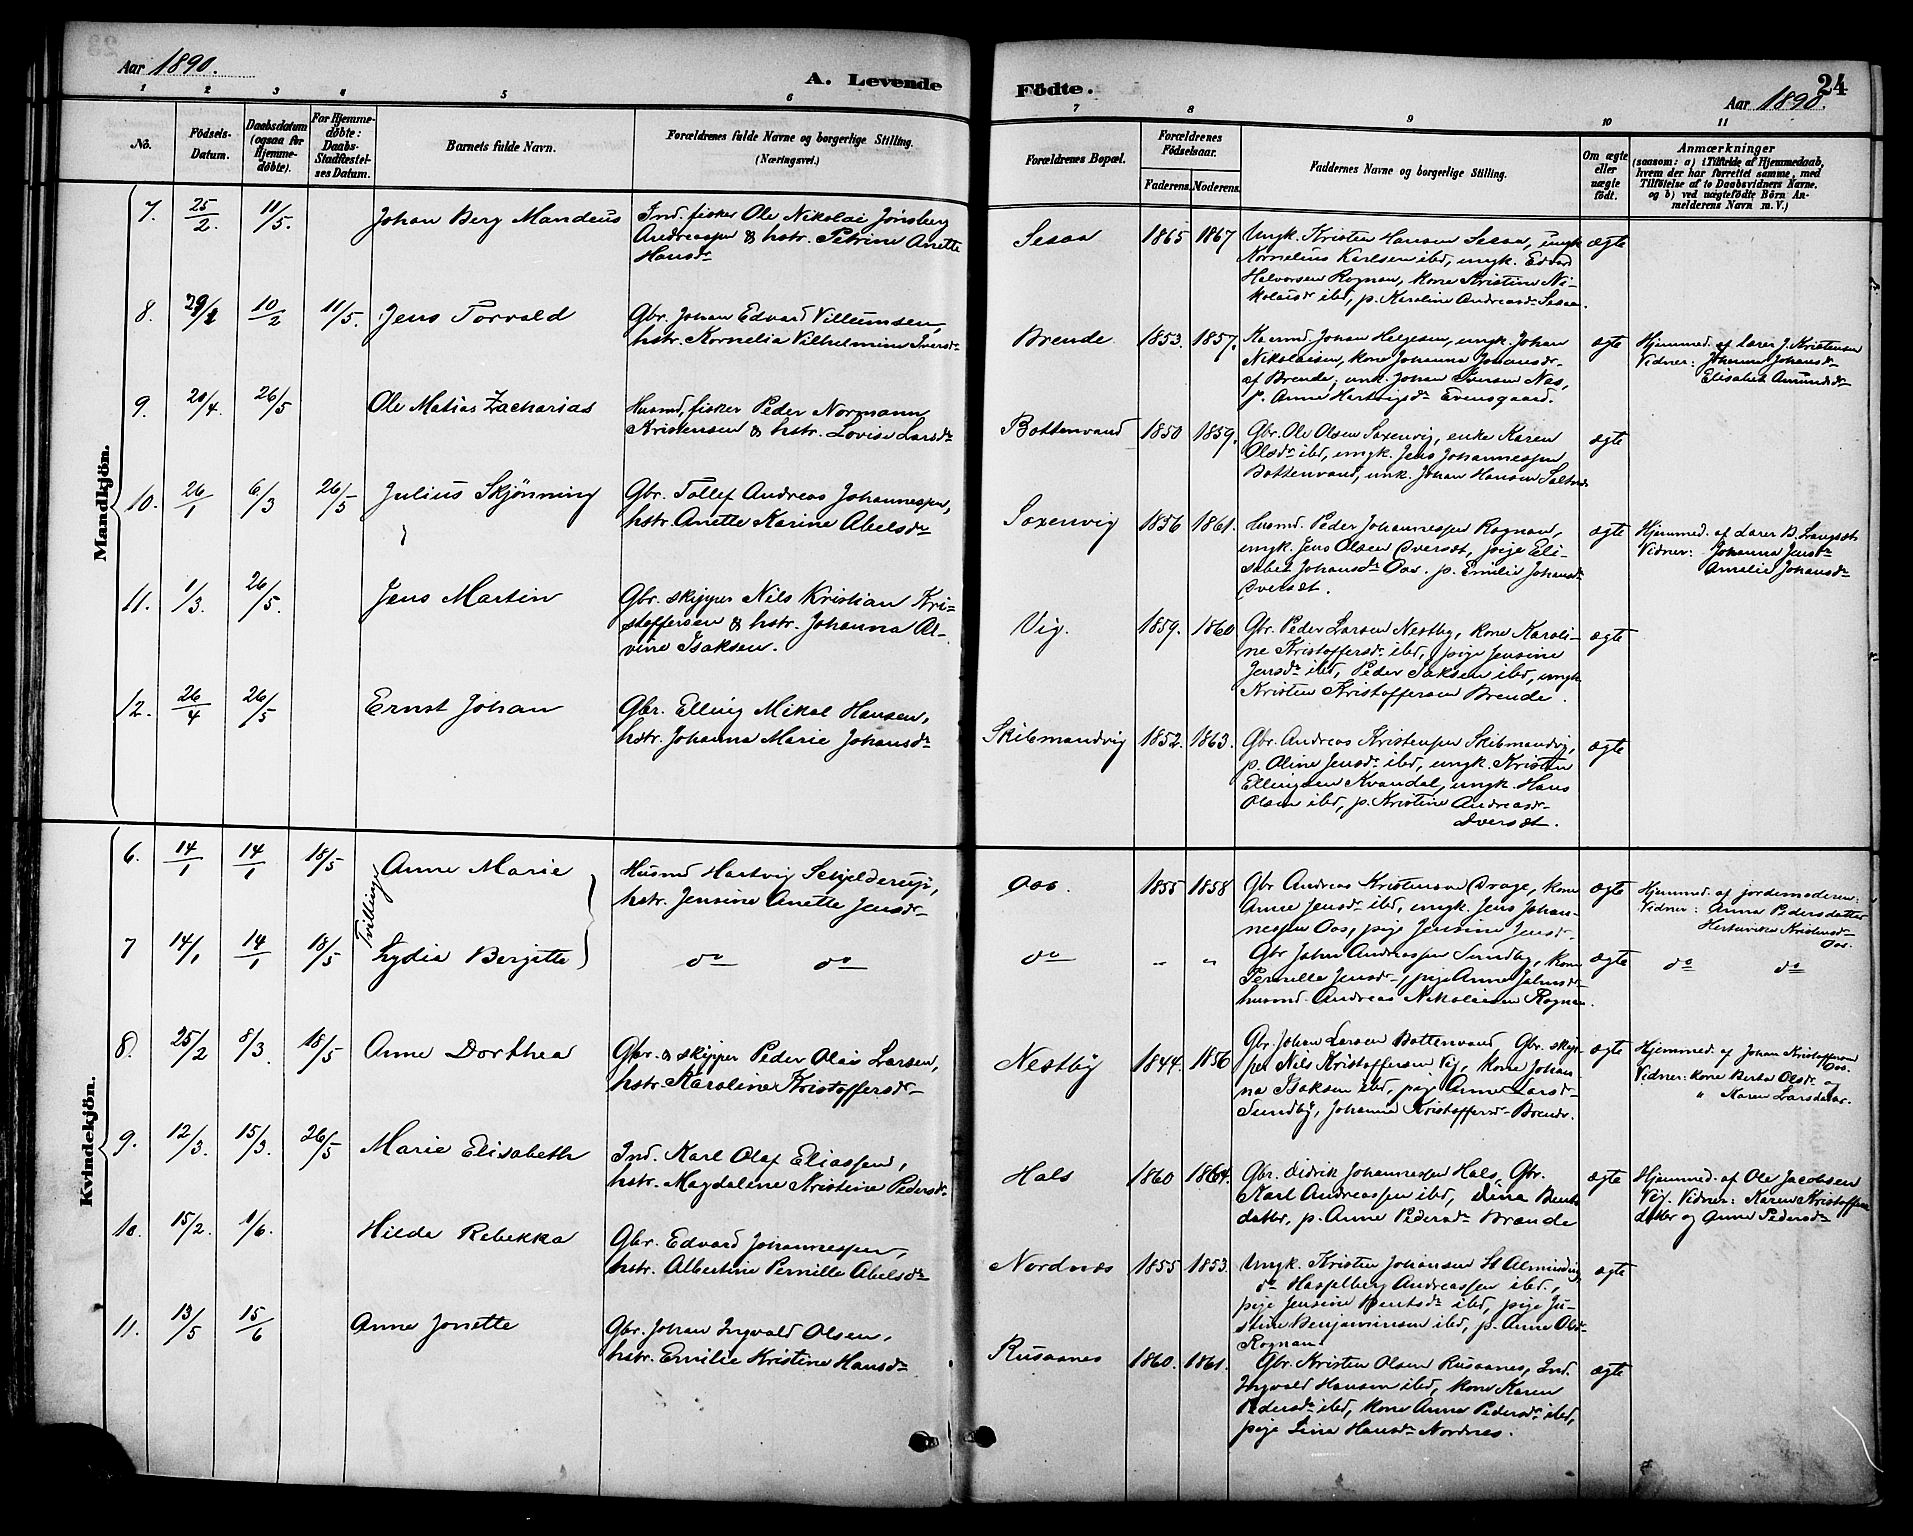 Aar 1890.
A. Levende
Födte.
24
Aar 1890.
1 2 3 4 5 6 7 8 9 10 11
No.
Födsels-
Datum.
Daabsdatum
(ogsaa for
Hjemme-
döbte).
For Hjemme-
döbte:
Daabs-
Stadfæstel-
ses Datum.
Barnets fulde Navn.
Forældrenes fulde Navne og borgerlige Stilling.
(Næringsvei.)
Forældrenes Bopæl.
Forældrenes
Födselsaar.
Faderens.
Moderens.
Faddernes Navne og borgerlige Stilling.
Om ægte
eller
uægte
födt.
Anmærkninger
(saasom: a) i Tilfælde af Hjemmedaab,
hvem der har forrettet samme, med
Tilföielse af to Daabsvidners Navne.
og b) ved uægtefödte Börn An-
melderens Navn m. V.)
Mandkjön.
7. 25/2. 11/5. Johan Berg Mandeus
Ind. fisker Ole Nikolai Jönsberg
Andreassen & hstr. Petrine Anette
Hansdr
Sesaa 1865 1867
Ungk. Kristen Hansen Sesaa, ungk
Kornelius Karlsen ibd, ungk. Edvard
Halvorsen Rognan, kone Kristine Ni-
kolaisdr ibd, p. Karoline Andreasdr Sesaa.
ægte
8. 29/1 10/2 11/5. Jens Torvald
Gbr. Johan Edvard Villumsen,
hstr. Kornelia Vilhelmine Iversdr
Brende 1853. 1857.
Kaarmd. Johan Helgesen, ungk. Johan
Nikolaisen, kone Johanna Johansdr
af Brende, unk. Johan Iversen Nes,
p. Anne Hartvigsdr Evensgaard.
ægte
Hjemmed. af Lærer J. Kristensen
Vidner: Johanna Johansdr
Elisabet Amundsdr
9. 20/4. 26/5 Ole Matias Zacharias
Husmd, fisker Peder Normann
Kristensen & hstr. Lovise Larsdr
Bottenvand 1850 1859.
Gbr. Ole Olsen Saxenvig, enke Karen
Olsdr ibd, ungk. Jens Johannessen
Bottenvand, unk. Johan Hansen Saltnes
ægte
10. 26/1 6/3 26/5 Julius Skjønning
Gbr. Tollef Andreas Johannessen,
hstr. Anette Karine Abelsdr
Saxenvig 1856 1861.
Husmd. Peder Johannessen Rognan,
ungk. Jens Olsen Dversæt, pige Eli-
sabet Johansdr Oos. p. Emilie Johansdr
Dversæt.
ægte
Hjemmed. af Lærer B. Langsæt
Vidner: Johanna Jensdr
Amelie Johansdr
11. 1/3. 26/5. Jens Martin
Gbr. skipper Nils Kristian Kri-
stoffersen & hstr. Johanna Al-
vine Isaksen.
Vig. 1859. 1860
Gbr. Peder Larsen Nestby, kone Karoli-
ne Kristoffersdr ibd, pige Jensine
Jensdr ibd, Peder Isaksen ibd, ungk
Kristen Kristoffersen Brende.
ægte
12. 26/4 26/5 Ernst Johan
Gbr. Elling Mikal Hansen,
hstr. Johanna Marie Johansdr
Skibmandvig 1852. 1863.
Gbr. Andreas Kristensen Skibmandvig,
p. Oline Jensdr ibd, ungk. Kristen
Ellingsen Kvandal, ungk. Hans
Olsen ibd, p. Kristine Andreasdr
Dversæt.
ægte
Kvindekjön.
6. 14/1 14/1 18/5 Anne Marie
Tvillinger
Husmd Hartvig Schjelderup,
hstr. Jensine Anette Jensdr
Oos. 1855 1858
Gbr Andreas Kristensen Drage, kone
Anne Jensdr ibd, ungk. Jens Johan-
nessen Oos, pige Jensine Jensdr.
ægte
Hjemmed. af jordemoderen:
Vidner: Anna Pedersdatter
Hertvikke Kristensdr
Oos.
7 14/1 14/1 18/5 Lydia Bergitte
do do
do " "
Gbr Johan Andreassen Sundby, kone
Pernille Jensdr, pige Anne Johnsdr
husmd. Andreas Nikolaisen Rognan.
ægte
do do
8. 25/2 8/3. 18/5 Anne Dorthea
Gbr. & skipper Peder Olai Larsen,
hstr. Karoline Kristoffersdr
Nestby 1844. 1856
Gbr. Johan Larsen Bottenvand, Gbr. skip-
per Nils Kristoffersen Vig, kone Johan-
na Isaksen ibd, pige Anne Larsdr
Sundby, Johanna Kristoffersdr Brende.
ægte
Hjemmed. af Johan Kristoffersen
Oos.
Vidner: kone Berta Olsdr og
" Karen Larsdatter.
9. 12/3. 15/3. 26/5 Marie Elisabeth
Ind. Karl Olaf Eliassen,
hstr. Magdalene Kristine Pedersdr
Hals 1860 1864.
Gbr. Didrik Johannessen Hals, Gbr.
Karl Andreassen ibd, Dina Bents-
datter, p. Anne Pedersdr Brænde
ægte
Hjemmed. af Ole Jacobsen
Vig. Vidner: Karen Kristoffers
datter og Anne Pedersdr
10. 15/2. 1/6. Hilda Rebekka
Gbr. Edvard Johannessen,
hstr. Albertine Pernille Abelsdr
Nordnæs 1855 1853.
Ungk. Kristen Johansen St Almindin
do Hasselberg Andreassen ibd.,
pige Jensine Bentsdr ibd, pige Ju-
stine Benjaminsen ibd, p. Anne Olsdr
Rognan.
ægte
11. 13/5 15/6 Anne Jonette
Gbr. Johan Ingvald Olsen,
hstr. Emilie Kristine Hansdr
Rusaanes 1860. 1861.
Gbr. Kristen Olsen Rusaanes, Ind.
Ingvald Hansen ibd, kone Karen
Pedersdr ibd, kone Anne Pedersdr ibd,
pige Lina Hansdr Nordnes.
ægte